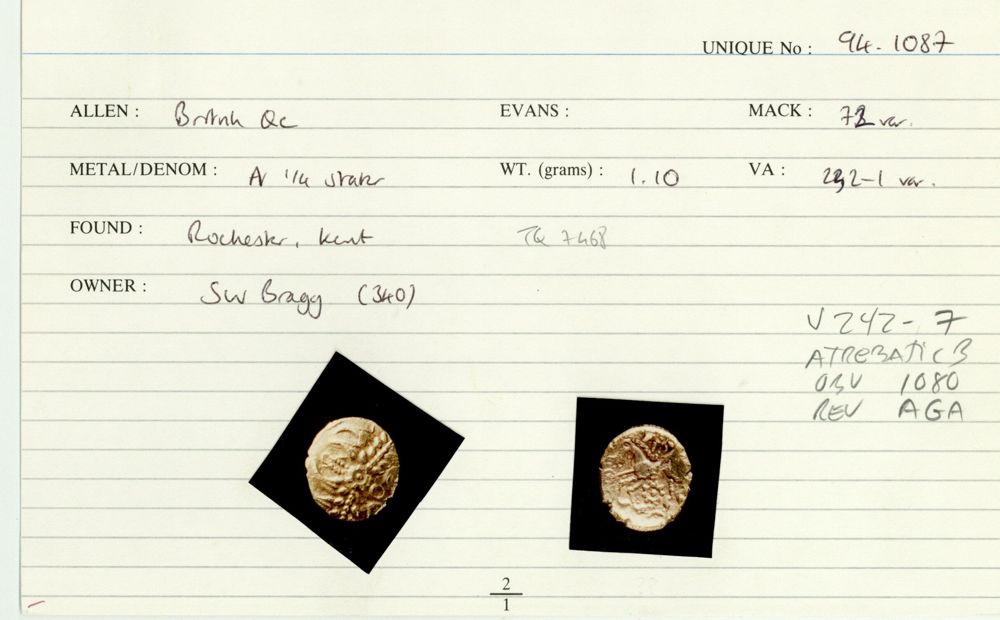 UNIQUE No : 94-1087
ALLEN : British Qc EVANS : MACK : 72 var.
METAL/DENOM : AV 1/4 stater WT. (grams) : 1.10 VA : 242-1 var.
FOUND : Rochester, Kent TQ 7468
OWNER : SW Bragg (340)
V 242-7
ATREBATIC B
OBV 1080
REV AGA
2
1